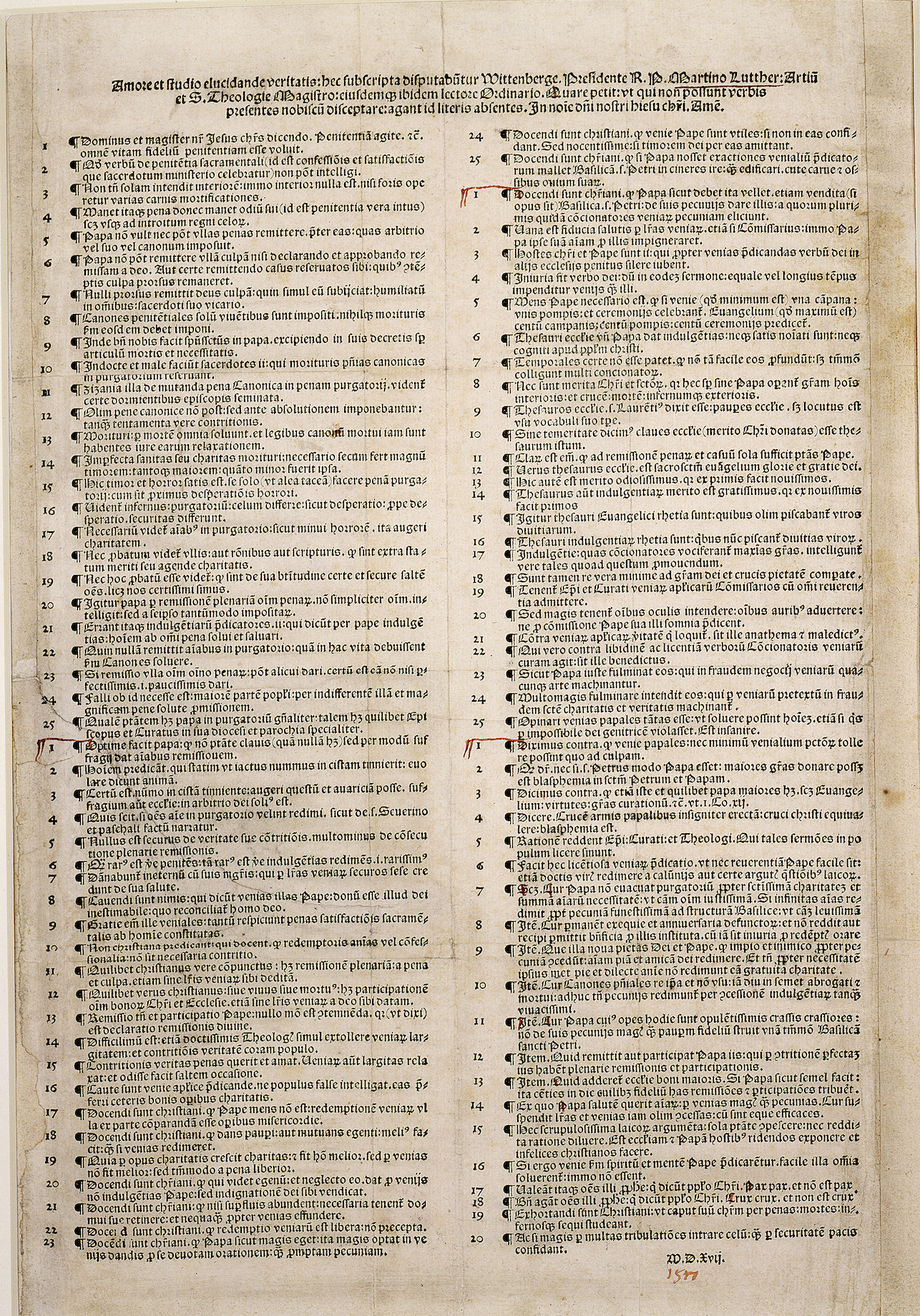 Amore et studio elucidande veritatis: hec subscripta disputabūtur Wittenberge. Presidente R. P. Martino Lutther: Artiū
et S. Theologie Magistro: eiusdemqꝫ ibidem lectore Ordinario. Quare petit: vt qui non possunt verbis
presentes nobiscū disceptare: agant id literis absentes. In noīe dn̄i nostri hiesu chr̄i. Amē.
1 ¶Dominus et magister nr̄ Jesus chr̄s dicendo. Penitentiā agite. ⁊č.
omnē vitam fideliū penitentiam esse voluit.
2 ¶Qḋ verbū de penitētia sacramentali (id est confessiōis et satisfactiōis
que sacerdotum ministerio celebratur) non pōt intelligi.
3 ¶Non tn̄ solam intendit interiorē: immo interior nulla est. nisi foris ope
retur varias carnis mortificationes.
4 ¶Manet itaqꝫ pena donec manet odiū sui (id est penitentia vera intus)
scꝫ vsqꝫ ad introitum regni celoꝝ.
5 ¶Papa nō vult nec pōt vllas penas remittere. p̄ter eas: quas arbitrio
vel suo vel canonum imposuit.
6 ¶Papa nō pōt remittere vllā culpā nisi declarando et approbando re-
missam a deo. Aut certe remittendo casus reservatos sibi: quibꝰ ꝯtē-
ptis culpa prorsus remaneret.
7 ¶Nulli prorsus remittit deus culpā: quin simul eū subijciat: humiliatū
in oīibus: sacerdoti suo vicario.
8 ¶Canones penitētiales solū viuētibus sunt impositi. nihilqꝫ morituris
ẜm eosdē debet imponi.
9 ¶Inde bn̄ nobis facit spūssctūs in papa. excipiendo in suis decretis sꝑ
articulū mortis et necessitatis.
10 ¶Indocte et male faciūt sacerdotes ii: qui morituris pn̄ias canonicas
in purgatoriū reseruant.
11 ¶Zizania illa de mutanda pena Canonica in penam purgatorij. vident̄
certe dormientibus episcopis seminata.
12 ¶Olim pene canonice nō post: sed ante absolutionem imponebantur:
tanqꝫ tentamenta vere contritionis.
13 ¶Morituri: ꝑ mortē omnia soluunt. et legibus canonū mortui iam sunt
habentes iure earum relaxationem.
14 ¶Imperfecta sanitas seu charitas morituri: necessario secam fert magnū
timorem: tantoqꝫ maiorem: quāto minor fuerit ipsa.
15 ¶Hic timor et horror satis est. se solo (vt alia taceā) facere penā purga-
torij: cum sit ꝓximus desperatiōis horrori.
16 ¶Vident̄ infernus: purgatoriū: celum differre: sicut desperatio: ꝓpe de-
speratio. securitas differunt.
17 ¶Necessariū videt̄ aīabꝰ in purgatorio: sicut minui horrorē. ita augeri
charitatem.
18 ¶Nec ꝓbatum videt̄ vllis: aut rōnibus aut scripturis. ꝙ sint extra sta-
tum meriti seu agende charitatis.
19 ¶Nec hoc ꝓbatū esse videt̄: ꝙ sint de sua btītudine certe et secure saltē
oēs. licꝫ nos certissimi simus.
20 ¶Igitur papa ꝑ remissionē plenariā oīm penaꝝ. nō simpliciter oīm. in-
telligit: sed a seipso tantūmodo impositaꝝ.
21 ¶Errant itaqꝫ indulgētiaꝝ p̄dicatores. ii: qui dicūt per pape indulgē
tias: hoīem ab omī pena solui et saluari.
22 ¶Quin nullam remittit aīabus in purgatorio: quā in hac vita debuissent
ẜm Canones soluere.
23 ¶Si remissio vlla oīm oīno penaꝝ: pōt alicui dari. certū est eā nō nisi ꝑ-
fectissimis. i. paucissimis dari.
24 ¶Falli ob id necesse est: maiorē partē popli: per indifferentē illā et ma-
gnificam pene solute ꝓmissionem.
25 ¶Qualē ptātem hꝫ papa in purgatoriū gn̄aliter: talem hꝫ quilibet Epi
scopus et Curatus in sua diocesi et parochia specialiter.
1 ¶Optime facit papa: ꝙ nō ptāte clauis (quā nullā hꝫ) sed per modū suf
fragij dat aīabus remissionem.
2 ¶Hoīem predicāt. qui statim vt iactus nummus in cistam tinnierit: euo
lare dicunt animā.
3 ¶Certū est. nūmo in cistā tinniente: augeri questū et auariciā posse. suf-
fragium aūt ecclie: in arbitrio dei soliꝰ est.
4 ¶Quis scit. si oēs aīe in purgatorio velint redimi. sicut de. s. Seuerino
et paschali factū narratur.
5 ¶Nullus est securus de veritate sue cōtritiōis. multominus de cōsecu
tione plenarie remissionis.
6 ¶Qꝫ rarꝰ est v̄e penitēs: tā rarꝰ est v̄e indulgētias redimēs. i. rarissimꝰ
7 ¶Dānabunt̄ ineternū cū suis mgr̄is: qui ꝑ lr̄as veniaꝝ securos sese cre
dunt de sua salute.
8 ¶Cauendi sunt nimis: qui dicūt venias illas Pape: donū esse illud dei
inestimabile: quo reconciliat̄ homo deo.
9 ¶Gratie em̄ ille veniales: tantū respiciunt penas satisfactiōis sacramē-
talis ab homīe constitutas.
10 ¶Non christiana predicant: qui docent. ꝙ redemptoris aīas vel cōfes-
sionalia: nō sit necessaria contritio.
11 ¶Quilibet christianus vere cōpunctus: hꝫ remissionē plenariā: a pena
et culpa. etiam sine lr̄is veniaꝝ sibi debitā.
12 ¶Quilibet verus christianus: siue viuus siue mortuꝰ: hꝫ participationē
oīm bonoꝝ Chr̄i et Ecclesie. etiā sine lr̄is veniaꝝ a deo sibi datam.
13 ¶Remissio tn̄ et participatio Pape: nullo mō est ꝯtemnēda. qꝛ (vt dixi)
est declaratio remissionis diuine.
14 ¶Difficilimū est: etiā doctissimis Theologꝭ simul extollere veniaꝝ lar-
gitatem: et contritiōis veritatē coram populo.
15 ¶Contritionis veritas penas querit et amat. Veniaꝝ aūt largitas rela
xat: et odisse facit saltem occasione.
16 ¶Caute sunt venie apl̄ice p̄dicande. ne populus false intelligat. eas p̄-
ferri ceteris bonis oꝑibus charitatis.
17 ¶Docendi sunt christiani. ꝙ Pape mens nō est: redemptionē veniaꝝ vl
la ex parte cōparandā esse oꝑibus misericordie.
18 ¶Docendi sunt christiani. ꝙ dans pauꝑi: aut mutuans egenti: meliꝰ fa-
cit: ꝙ̄ si venias redimeret.
19 ¶Quia ꝑ opus charitatis crescit charitas: ⁊ fit hō melior. sed ꝑ venias
nō fit melior: sed tm̄modo a pena liberior.
20 ¶Docendi sunt christiani. ꝙ qui videt egenū: et neglecto eo. dat ꝓ venijs
nō indulgētias Pape: sed indignationē dei sibi vendicat.
21 ¶Docendi sunt christiani. ꝙ nisi suꝑfluis abundent: necessaria tenent̄ do-
mui sue retinere: et nequaqꝫ ꝓpter venias effundere.
22 ¶Docēdi sunt christiani. ꝙ redemptio veniaꝝ est libera: nō precepta.
23 ¶Docēdi sunt chr̄iani. ꝙ Papa sicut magis eget: ita magis optat in ve
nijs dandis ꝓ se deuotam orationem: ꝙ̄ ꝓmptam pecuniam.
24 ¶Docendi sunt christiani. ꝙ venie Pape sunt vtiles: si non in eas confi-
dant. Sed nocentissime: si timorem dei per eas amittant.
25 ¶Docendi sunt chr̄iani. ꝙ si Papa nosset exactiones venialiū p̄dicato-
rum mallet Basilicā. s. Petri in cineres ire: ꝙ̄ edificari. cute carne ⁊ os-
sibus ouium suaꝝ.
1 ¶Docendi sunt chr̄iani. ꝙ Papa sicut debet ita vellet. etiam vendita (si
opus sit) Basilica. s. Petri: de suis pecunijs dare illis: a quorum pluri-
mis quidā cōcionatores veniaꝝ pecuniam eliciunt.
2 ¶Vana est fiducia salutis ꝑ lr̄as veniaꝝ. etiā si Cōmissarius: immo Pa-
pa ipse suā aīam ꝓ illis impigneraret.
3 ¶Hostes chr̄i et Pape sunt ii: qui ꝓpter venias p̄dicandas verbū dei in
alijs ecclesijs penitus silere iubent.
4 ¶Iniuria fit verbo dei: dū in eodeꝫ sermone: equale vel longius tēpus
impenditur venijs ꝙ̄ illi.
5 ¶Mens Pape necessario est. ꝙ si venie (qḋ minimum est) vna cāpana:
vnis pompis: et ceremonijs celebrant̄. Euangelium (qḋ maximū est)
centū campanis: centū pompis: centū ceremonijs predicet̄.
6 ¶Thesauri ecclie vn̄ Papa dat indulgētias: neqꝫ satis noīati sunt: neqꝫ
cogniti apud ppl̄m christi.
7 ¶Temporales certe nō esse patet. ꝙ nō tā facile eos ꝓfundūt: sꝫ tm̄mō
colligunt multi concionatoꝝ.
8 ¶Nec sunt merita Chr̄i et sctōꝝ. qꝛ hec sꝑ sine Papa oꝑant̄ gr̄am hoīs
interioris: et crucē: mortē: infernumqꝫ exterioris.
9 ¶Thesauros ecclie. s. Laurētiꝰ dixit esse: pauꝑes ecclie. sꝫ locutus est
vsu vocabuli suo tꝑe.
10 ¶Sine temeritate dicimꝰ claues ecclie (merito Chr̄i donatas) esse the-
saurum istum.
11 ¶Claꝝ est em̄. ꝙ ad remissionē penaꝝ et casuū sola sufficit ptās Pape.
12 ¶Verus thesaurus ecclie. est sacrosctm̄ euāgelium glorie et gratie dei.
13 ¶Hic aūt est merito odiosissimus. qꝛ ex primis facit nouissimos.
14 ¶Thesaurus aūt indulgentiaꝝ merito est gratissimus. qꝛ ex nouissimis
facit primos
15 ¶Igitur thesauri Euangelici rhetia sunt: quibus olim piscabant̄ viros
diuitiarum.
16 ¶Thesauri indulgentiaꝝ rhetia sunt: qͥbus nūc piscant̄ diuitias viroꝝ.
17 ¶Indulgētie: quas cōcionatores vociferant̄ maxīas gr̄as. intelligunt̄
vere tales quoad questum ꝓmouendum.
18 ¶Sunt tamen re vera minime ad gr̄am dei et crucis pietatē compate.
19 ¶Tenent̄ Epī et Curati veniaꝝ apl̄icarū Cōmissarios cū omī reueren-
tia admittere.
20 ¶Sed magis tenent̄ oībus oculis intendere: oībus auribꝰ aduertere:
ne ꝓ cōmissione Pape sua illi somnia p̄dicent.
21 ¶Cōtra veniaꝝ apl̄icaꝝ v̄itatē qͥ loquit̄. sit ille anathema ⁊ maledictꝰ.
22 ¶Qui vero contra libidinē ac licentiā verborū Cōcionatoris veniarū
curam agit: sit ille benedictus.
23 ¶Sicut Papa iuste fulminat eos: qui in fraudem negocij veniarū qua-
cunqꝫ arte machinantur.
24 ¶Multomagis fulminare intendit eos: qui ꝑ veniarū pretextū in frau-
dem sctē charitatis et veritatis machinant̄.
25 ¶Opinari venias papales tātas esse: vt soluere possint hoīeꝫ. etiā si qͥs
ꝑ impossibile dei genitricē violasset. Est insanire.
1 ¶Diximus contra. ꝙ venie papales: nec minimū venialium pctōꝝ tolle
re possint quo ad culpam.
2 ¶Qḋ dr̄. nec si. s. Petrus modo Papa esset: maiores gr̄as donare possꝫ
est blasphemia in sctm̄ Petrum et Papam.
3 ¶Dicimus contra. ꝙ etiā iste et quilibet papa maiores hꝫ. scꝫ Euange-
lium: virtutes: gr̄as curationū. ⁊č. vt. i. Co. xij.
4 ¶Dicere. Crucē armis papalibus insigniter erectā: cruci christi equiua-
lere: blasphemia est.
5 ¶Rationē reddent Epī: Curati: et Theologi. Qui tales sermōes in po
pulum licere sinunt.
6 ¶Facit hec licētiosa veniaꝝ p̄dicatio. vt nec reuerentiā Pape facile sit:
etiā doctis virꝭ redimere a calūnijs aut certe argutꝭ q̄stiōibꝰ laicoꝝ.
7 ¶Scꝫ. Cur Papa nō euacuat purgatoriū ꝓpter sctīssimā charitateꝫ et
summā aīarū necessitatē: vt cām oīm iustissimā. Si infinitas aīas re-
dimit ꝓpt̄ pecuniā funestissimā ad structurā Basilice: vt cāꝫ leuissimā
8 ¶Itē. Cur ꝑmanēt exequie et anniuersaria defunctoꝝ: et nō reddit aut
recipi ꝑmittit bn̄ficia ꝓ illis instituta. cū iā sit iniuria ꝓ redēptꝭ orare
9 ¶Itē. Que illa noua pietas Dei et Pape. ꝙ impio et inimico ꝓpter pe-
cuniā ꝯcedūt: aīam piā et amicā dei redimere. Et tn̄ ꝓpter necessitatē
ipsius met pie et dilecte aīe nō redimunt eā gratuita charitate.
10 ¶Itē. Cur Canones pn̄iales re ipa et nō vsu: iā diu in semet abrogati ⁊
mortui: adhuc tn̄ pecunijs redimunt̄ per ꝯcessionē indulgētiaꝝ tanqꝫ
viuacissimi.
11 ¶Itē. Cur Papa cuiꝰ opes hodie sunt opulētissimis crassis crassiores:
nō de suis pecunijs magꝭ ꝙ̄ pauꝑm fideliū struit vnā tm̄mō Basilicā
sancti Petri.
12 ¶Item. Quid remittit aut participat Papa iis: qui ꝑ ꝯtritionē ꝑfectaꝫ
ius habēt plenarie remissionis et participationis.
13 ¶Item. Quid adderet̄ ecclie boni maioris. Si Papa sicut semel facit:
ita cēties in die cuilibꝫ fideliū has remissiōes ⁊ ꝑticipatiōes tribuēt.
14 ¶Ex quo Papa salutē querit aīaꝝ: ꝑ venias magꝭ ꝙ̄ pecunias. Cur su-
spendit lr̄as et venias iam olim ꝯcessas: cū sint eque efficaces.
15 ¶Hec scrupulosissima laicoꝝ argumēta: sola ptāte ꝯpescere: nec reddi-
ta ratione diluere. Est eccliam ⁊ Papā hostibꝰ ridendos exponere et
infelices christianos facere.
16 ¶Si ergo venie ẜm spiritū et mentē Pape p̄dicarentur. facile illa omnia
soluerent̄: immo nō essent.
17 ¶Valeāt itaqꝫ oēs illi ꝓphe: qͥ dicūt ppl̄o Chr̄i. Pax pax. et nō est pax.
18 ¶Bn̄ agāt oēs illi ꝓphe: qͥ dicūt ppl̄o Chr̄i. Crux crux. et non est crux
19 ¶Exhortandi sunt Christiani: vt caput suū chr̄m per penas: mortes: in-
fernosqꝫ sequi studeant.
20 ¶Ac si magis ꝑ multas tribulatiōes intrare celū: ꝙ̄ ꝑ securitatē pacis
confidant.
M.D.Xvij.
1517